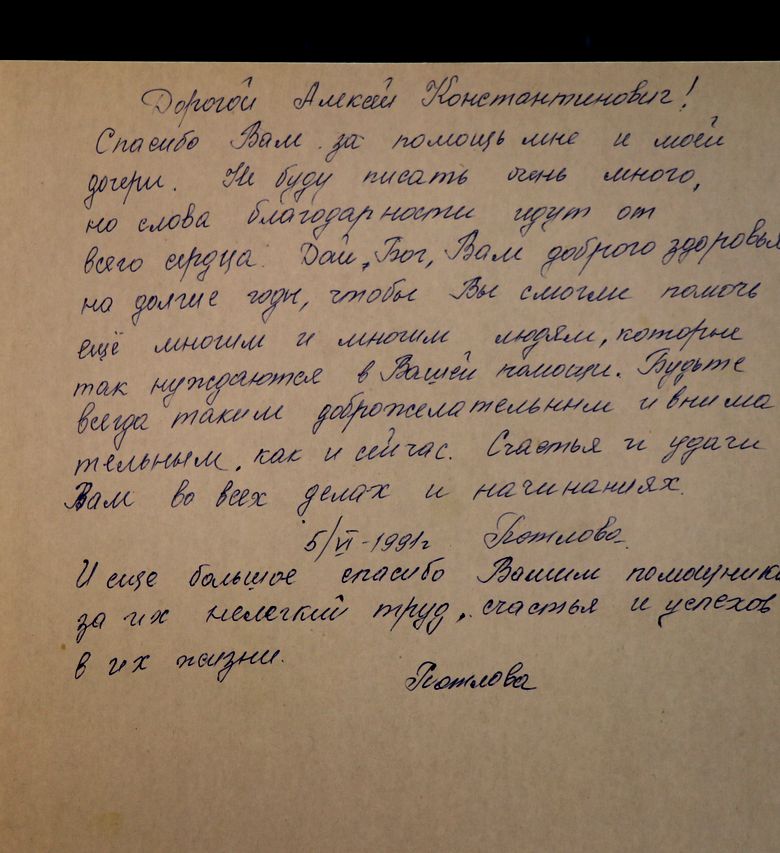 Дорогой Алексей Константинович!
Спасибо Вам за помощь мне и моей
дочери. Не буду писать очень много,
но слова благодарности идут от
всего сердца. Дай, Бог, Вам доброго здоровья
на долгие годы, чтобы Вы смогли помочь
ещё многим и многим людям, которые
так нуждаются в Вашей помощи. Будьте
всегда таким доброжелательным и внима
тельным, как и сейчас. Счастья и удачи
Вам во всех делах и начинаниях.
5/VI-1991г
И еще большое спасибо Вашим помощника
за их нелегкий труд, счастья и успехов
в их жизни.